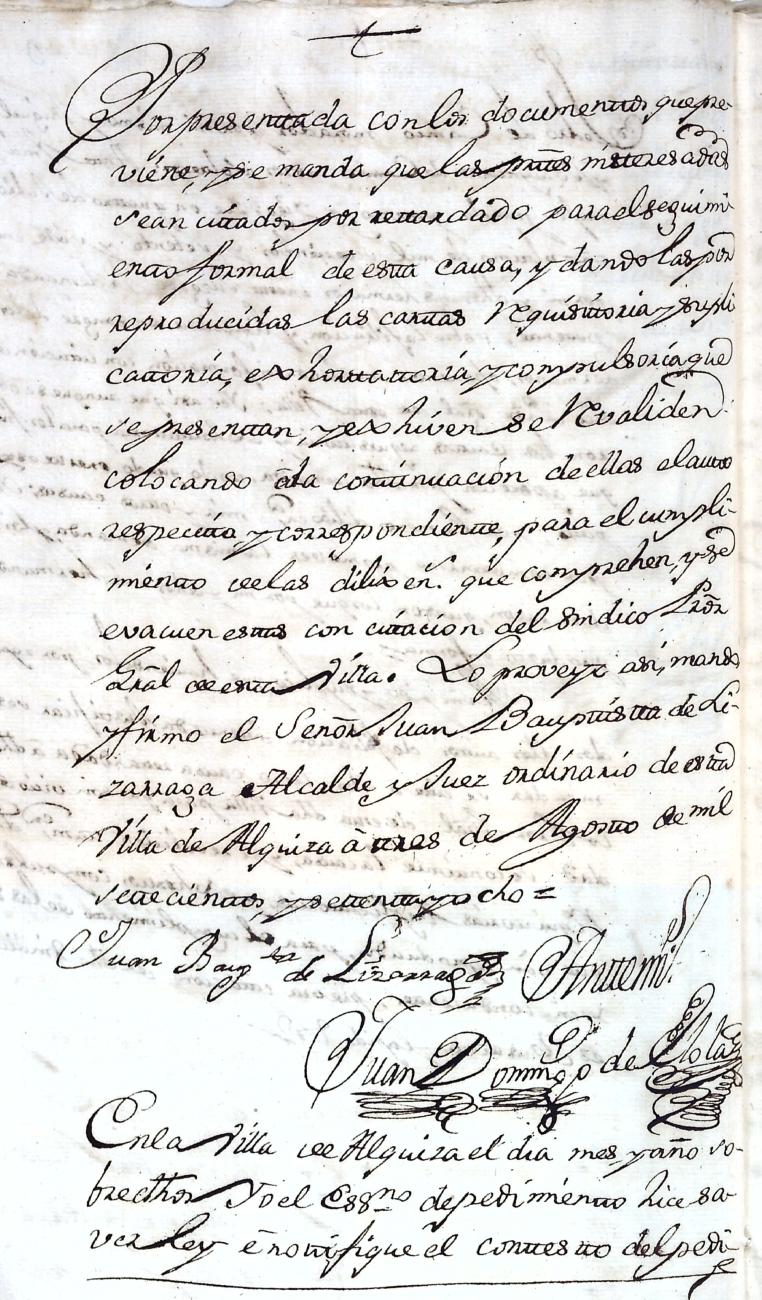 Por presentada con los documentos, que pre-
viéne, y se manda que las prũes ińteresadas
sean citados por retardado para el seguimi-
ento formal de esta causa, y dandolas por
reproducidas las cartas Requisitoria y supli
catoria, exhortatoria, y compulsoria que
se presentan, y exhiven se Revaliden
colocando ála continuación de ellas el auto
respectivo y correspondiente, para el cumpli-
miento de las dilixen.s que comprehen, y se
evacuen estas con citacion del Sindico Pr̃or
Gr̃al de esta Villa. Lo proveyo asi, mando
y firmo el Señor Juan Bauptistta de Li-
zarraga Alcalde y Juez ordinario de esta
Villa de Alquiza á tres de Agosto de mil
setecientos, y setenta y ocho =
Juan Baup.ta de Lizarraga
Antemi
Juan Domingo de
En la Villa de Alquiza el dia mes y año so-
bredhos Yo el Essno de pedimiento hice sa-
ver ley é notifique el contesto del pedi-